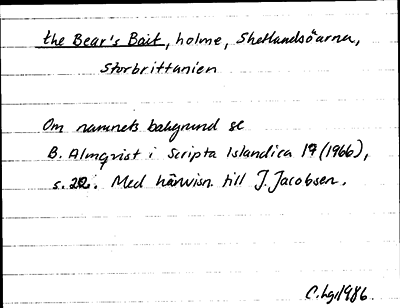 the Bear's Bait, holme, Shetlandsöarna,
Storbrittanien
Om namnets bakgrund se
B. Almqvist i Scripta Islandica 17 (1966),
s. 22. Med hänvisn. till J. Jacobsen.
1986.